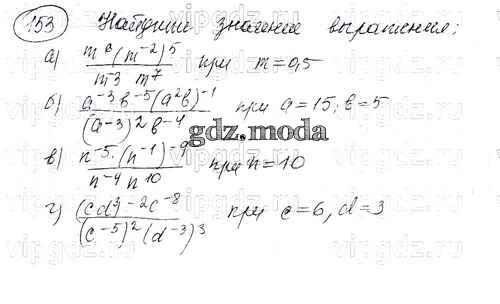 153 Найдите значение выражения:
а) m^6 (m^-2)^5 / m^-3 m^7 при m=0,5
б) a^-3 b^-5 (a^2 b)^-1 / (a^-3)^2 b^-4 при a=15; b=5
в) n^-5 · (n^-1)^-9 / n^-4 n^10 при n=10
г) (cd^4)^-2 c^-8 / (c^-5)^2 (d^-3)^3 при c=6, d=3
gdz.moda
vipgdz